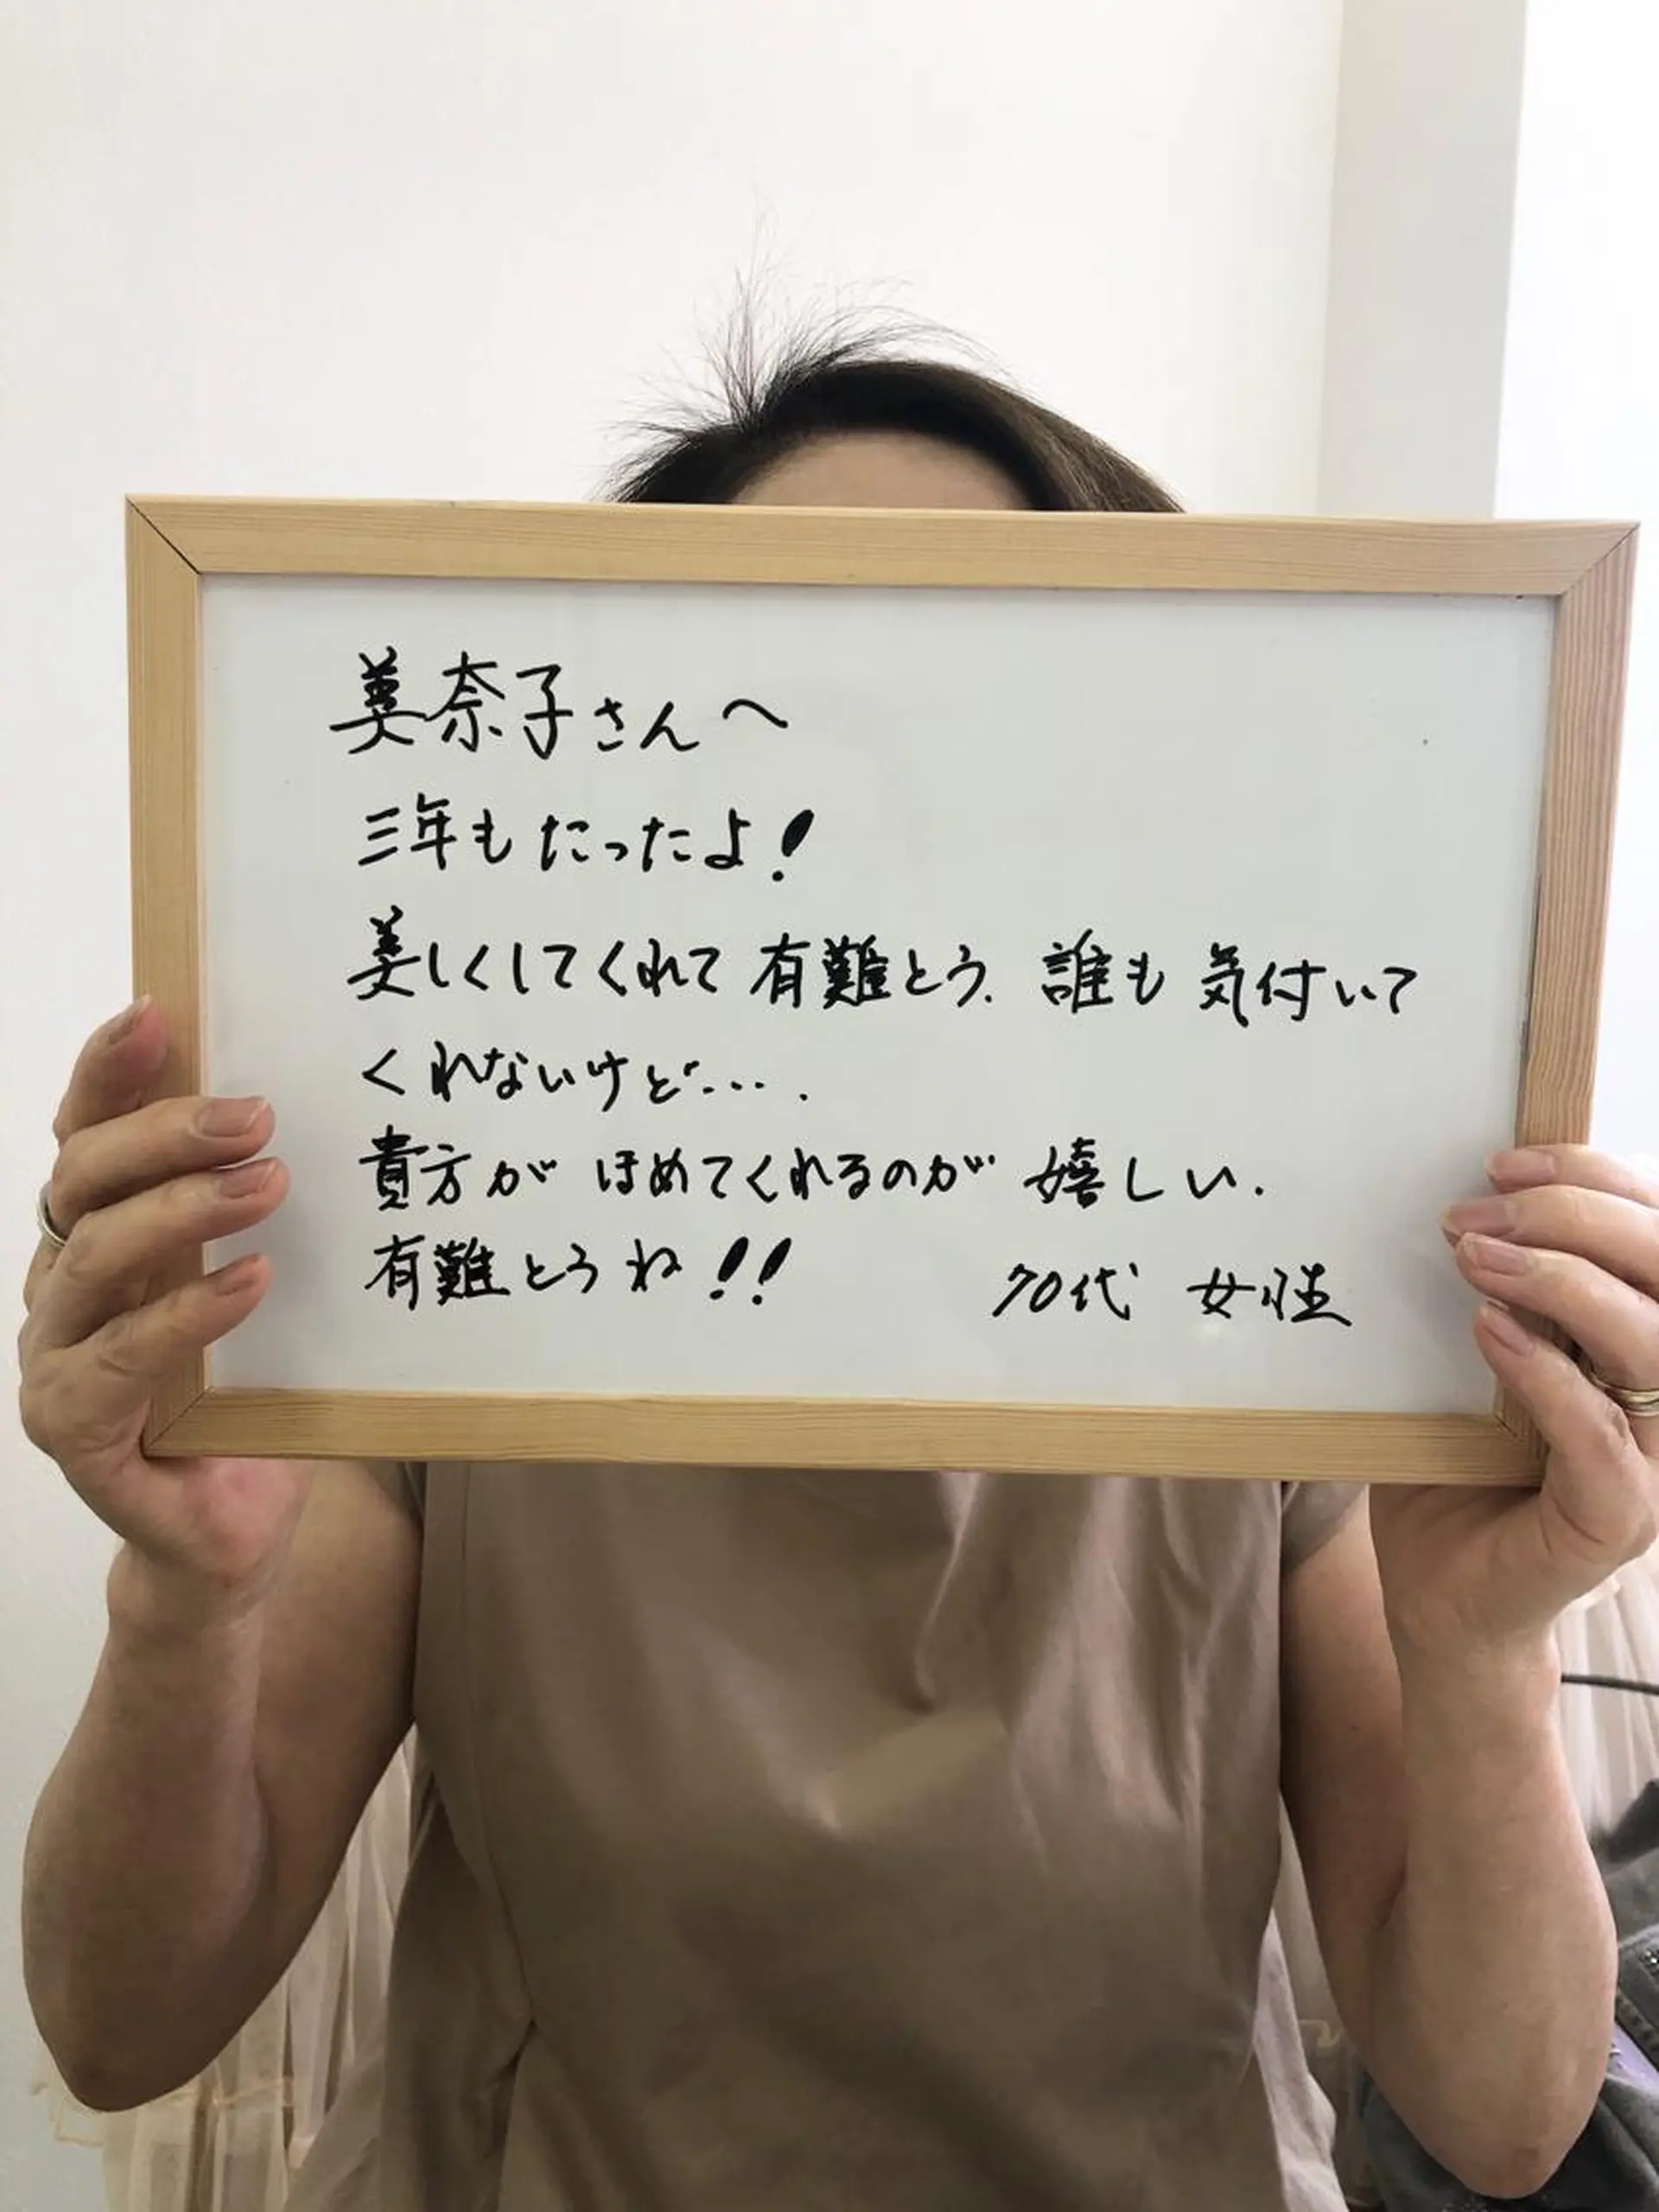 美奈子さんへ
三年もたったよ!
美しくしてくれて有難とう. 誰も気付いて
くれないけど....
貴方がほめてくれるのが嬉しい.
有難とうね!!
70代 女性